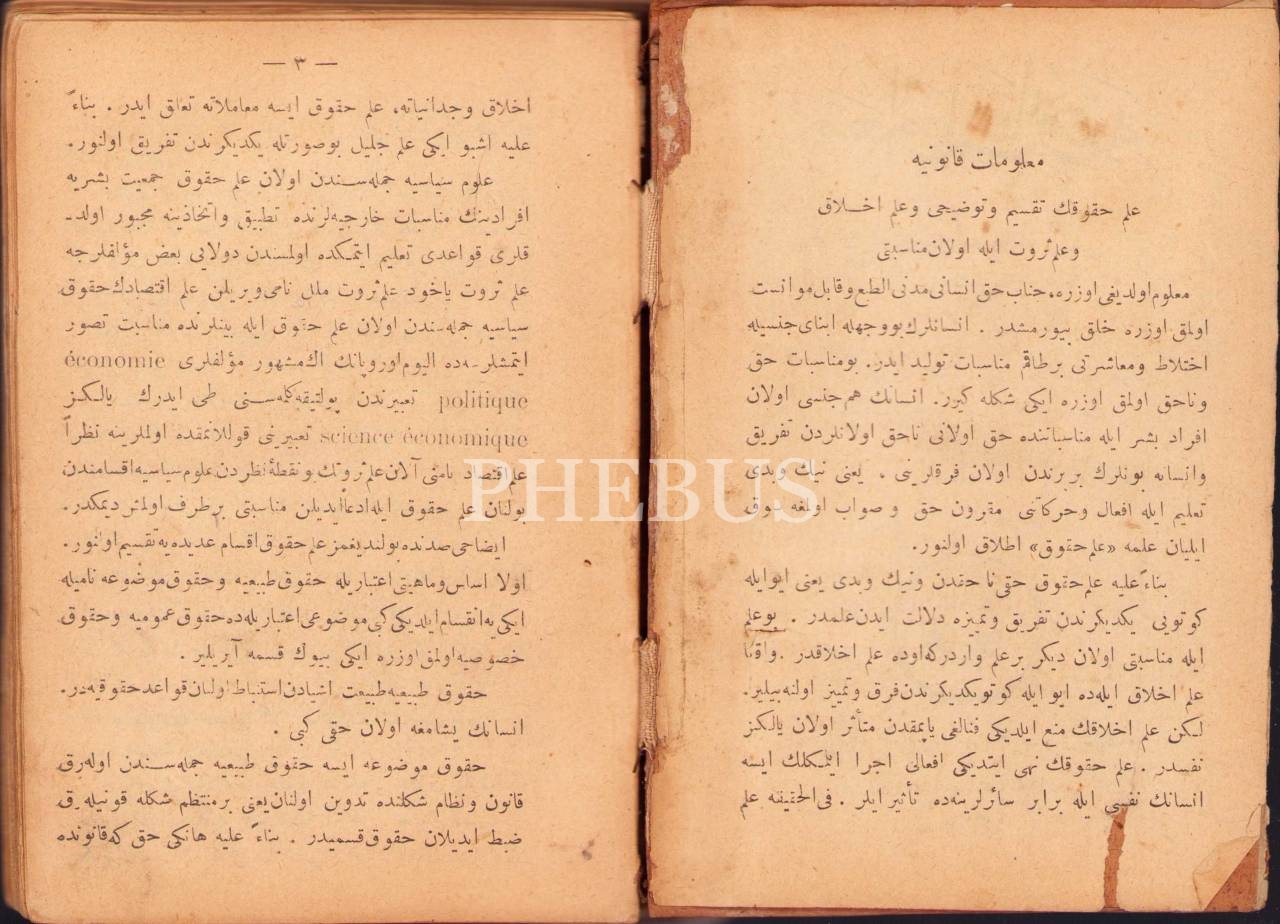 معلومات قانونیه
علم حقوقك تقسیم وتوضیحی وعلم اخلاق
وعلم ثروت ایله اولان مناسبتی
معلوم اولدیغی اوزره، جناب حق انسانی مدنی الطبع وقابل موانست
اولمق اوزره خلق بیورمشدر . انسانلرك بووجهله ابنای جنسیله
اختلاط ومعاشرتی برطاقم مناسبات تولید ایدر. بومناسبات حق
وناحق اولمق اوزره ایكی شكله كیرر. انسانك هم جنسی اولان
افراد بشر ایله مناسباتنده حق اولانی ناحق اولانلردن تفریق
وانسانه بونلرك بربرندن اولان فرقلرینی . یعنی نیك وبدی
تعلیم ایله افعال وحركاتی مقرون حق و صواب اولمغه سوق
ایلیان علمه «علم حقوق» اطلاق اولنور.
بناءً علیه علم حقوق حقی ناحقدن ونیك وبدی یعنی ایوایله
كوتویی یكدیكرندن تفریق وتمییزه دلالت ایدن علمدر . بوعلم
ایله مناسبتی اولان دیكر برعلم واردركه اوده علم اخلاقدر . واقعا
علم اخلاق ایله ده ایو ایله كوتو یكدیكرندن فرق وتمییز اولنه بیلیر.
لكن علم اخلاقك منع ایلدیكی فنالغی یاپمقدن متأثر اولان یالكز
نفسدر . علم حقوقك نهی ایتدیكی افعالی اجرا ایتمكلك ایسه
انسانك نفسی ایله برابر سائرلرینه ده تأثیر ایلر . فی الحقیقه علم
— ٣ —
اخلاق وجدانیاته، علم حقوق ایسه معاملاته تعلق ایدر . بناءً
علیه اشبو ایكی علم جلیل بوصورتله یكدیكرندن تفریق اولنور.
علوم سیاسیه جمله سندن اولان علم حقوق جمعیت بشریه
افرادینك مناسبات خارجیه لرنده تطبیق واتخاذینه مجبور اولد-
قلری قواعدی تعلیم ایتمكده اولمسندن دولایی بعض مؤلفلرجه
علم ثروت یاخود علم ثروت ملل نامی ویریلن علم اقتصادك حقوق
سیاسیه جمله سندن اولان علم حقوق ایله بینلرنده مناسبت تصور
ایتمشلرسه ده الیوم اوروپانك اك مشهور مؤلفلری économie
politique تعبیرندن پولتیقه كلمه سنی طی ایدرك یالكز
science économique تعبیرینی قوللانمقده اولملرینه نظراً
علم اقتصاد نامنی آلان علم ثروتك ونقطۀ نظردن علوم سیاسیه اقسامندن
بولنان علم حقوق ایله ادعا ایدیلن مناسبتی برطرف اولمش دیمكدر.
ایضاحی صدنده بولندیغمز علم حقوق اقسام عدیده یه تقسیم اولنور.
اولا اساس وماهیتی اعتباریله حقوق طبیعیه وحقوق موضوعه نامیله
ایكی یه انقسام ایلدیكی كبی موضوعی اعتباریله ده حقوق عمومیه وحقوق
خصوصیه اولمق اوزره ایكی بیوك قسمه آیریلیر .
حقوق طبیعیه طبیعت اشیادن استنباط اولنان قواعد حقوقیه در.
انسانك یشامغه اولان حقی كبی .
حقوق موضوعه ایسه حقوق طبیعیه جمله سندن اوله رق
قانون ونظام شكلنده تدوین اولنان یعنی برمنتظم شكله قونیله رق
ضبط ایدیلان حقوق قسمیدر . بناءً علیه هانكی حق كه قانونده
PHEBUS